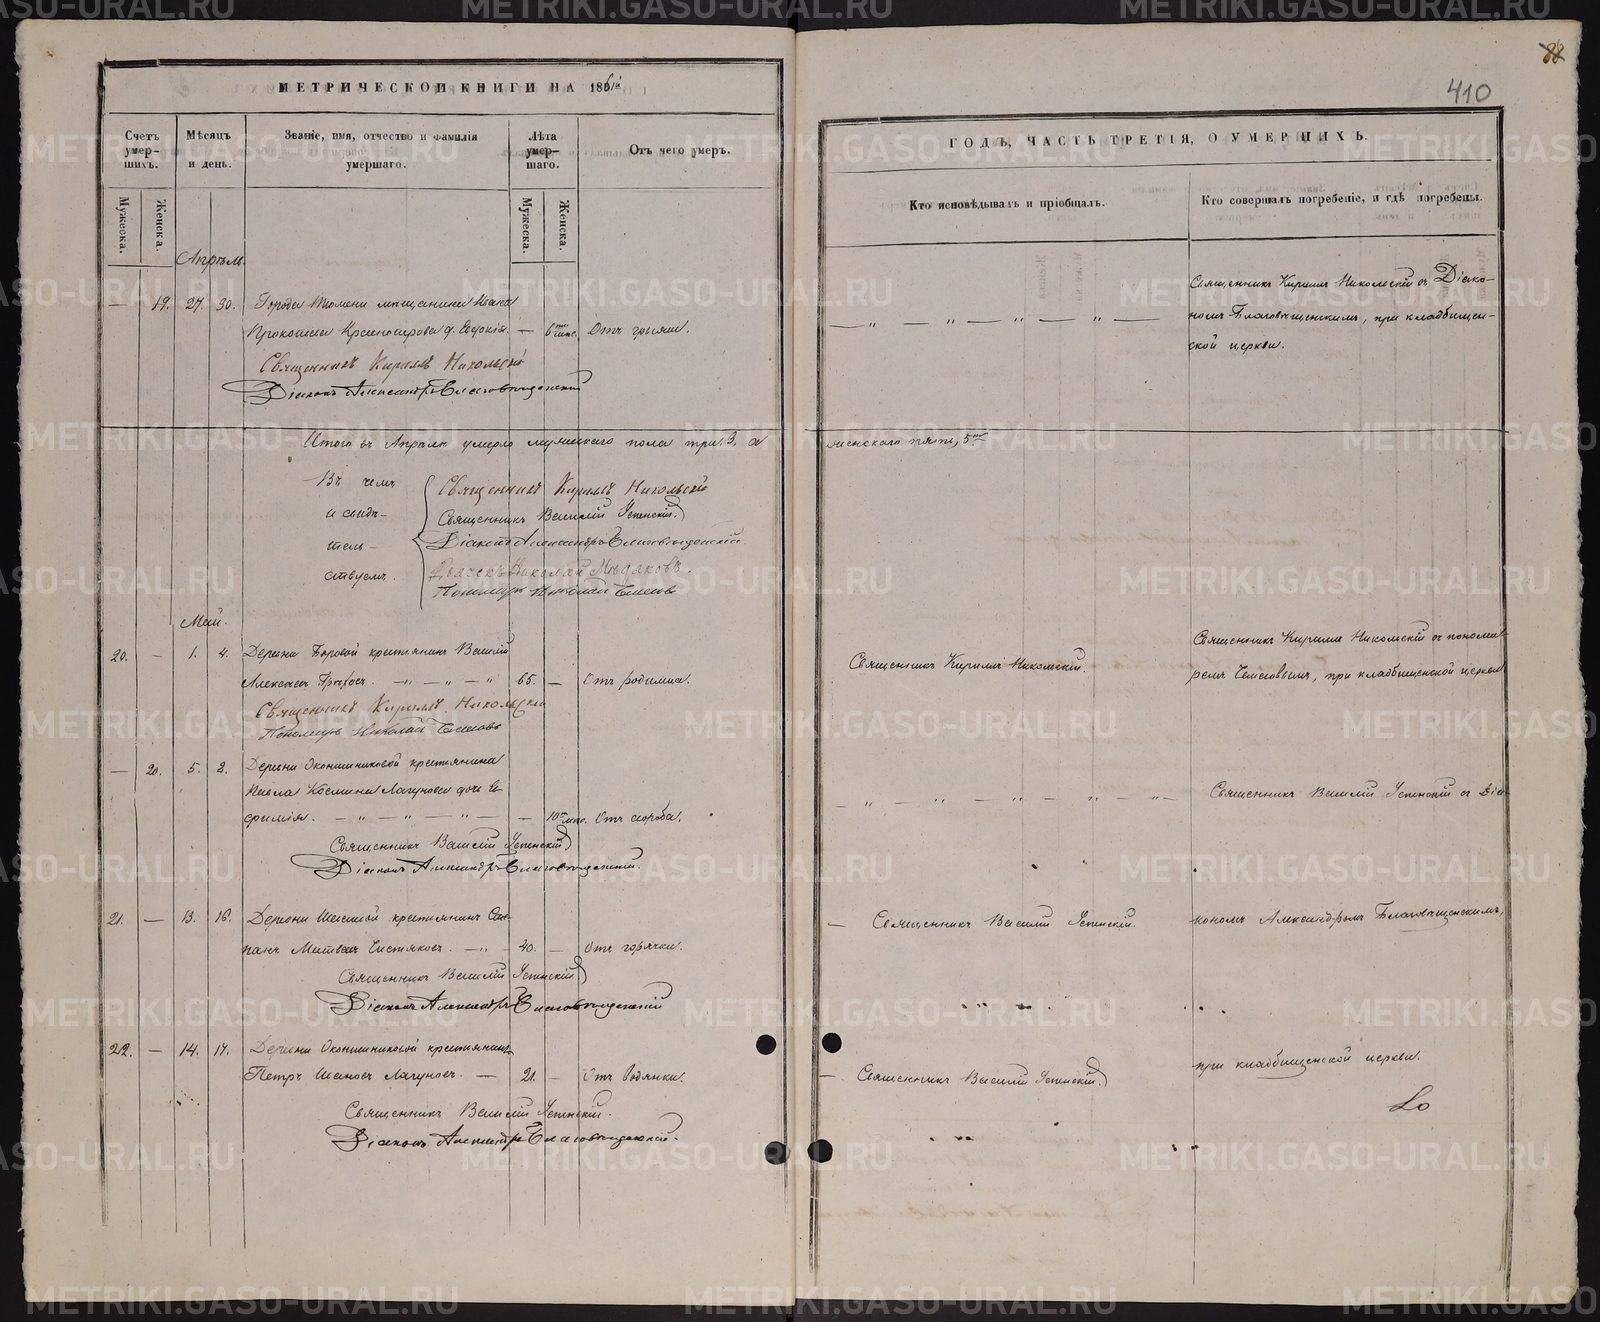 МЕТРИЧЕСКОЙ КНИГИ НА 1861й
Счетъ умер-шихъ.
Мѣсяцъ и день.
Званіе, имя, отчество и фамилія умершаго.
Лѣта умер-шаго.
Отъ чего умеръ.
Мужеска.
Женска.
Мужеска.
Женска.
Апрѣль.
— 19. 27. 30. Города Тюмени мѣщанина Ивана
Прокопьева д. Евдокія. — 6 мѣс. Отъ грыжи.
Священникъ Кириллъ Никольскій
Діаконъ Александръ Благовѣщенскій
Итого въ Апрѣлѣ умерло мужескаго пола три, 3, а
Въ чемъ
и свидѣ-
тель-
ствуемъ.
Священникъ Кириллъ Никольскій
Священникъ Василій Успенскій
Діаконъ Александръ Благовѣщенскій
Дьячекъ Николай
Пономарь Николай
Май.
20. — 1. 4. Дервни Боровой крестьянинъ Василій
Алексѣевъ — " — " — " 65. — Отъ родимца.
Священникъ Кириллъ Никольскій
Пономарь Николай
— 20. 5. 8. Дервни Оконшниковой крестьянина
Павла Космина Лагунова дочь Е-
фимія. — " — " — " — — 10 мѣс. Отъ короба.
Священникъ Василій Успенскій
Діаконъ Александръ Благовѣщенскій.
21. — 13. 16. Дервни крестьянинъ
Матвѣевъ Чистяковъ. — " — 40. — Отъ горячки.
Священникъ Василій Успенскій
Діаконъ Александръ Благовѣщенскій
22. — 14. 17. Дервни Оконшниковой крестьянинъ
Петръ Ивановъ Лагуновъ. — 21. — Отъ водянки.
Священникъ Василій Успенскій.
Діаконъ Александръ Благовѣщенскій.
410
ГОДЪ, ЧАСТЬ ТРЕТІЯ, О УМЕРШИХЪ.
Кто исповѣдывалъ и пріобщалъ.
Кто совершалъ погребеніе, и гдѣ погребены.
— " — " — " — " —
Священникъ Кириллъ Никольскій съ Діако-
номъ Благовѣщенскимъ, при кладбищен-
ской церкви.
женскаго пять, 5
Священникъ Кириллъ Никольскій.
Священникъ Кириллъ Никольскій съ понома-
ремъ, при кладбищенской церкви
— " — " — " — " —
Священникъ Василій Успенскій съ Діа-
— Священникъ Василій Успенскій.
кономъ Александромъ Благовѣщенскимъ,
— Священникъ Василій Успенскій.
при кладбищенской церкви.
METRIKI.GASO-URAL.RU